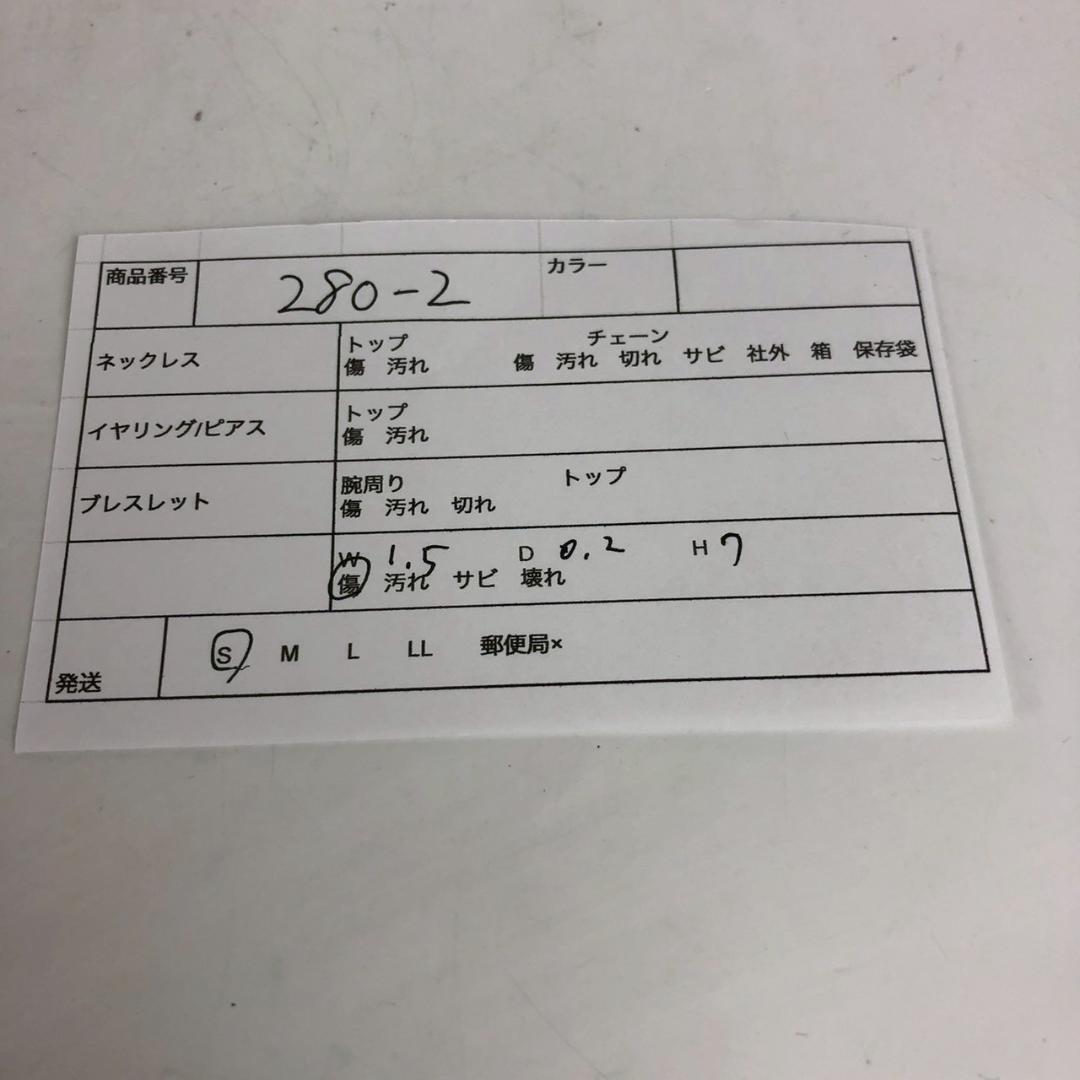 商品番号 280-2 カラー
ネックレス トップ チェーン
傷 汚れ 傷 汚れ 切れ サビ 社外 箱 保存袋
イヤリング/ピアス トップ
傷 汚れ
ブレスレット 腕周り トップ
傷 汚れ 切れ
W 1.5 D 0.2 H 7
傷 汚れ サビ 壊れ
発送 S M L LL 郵便局×